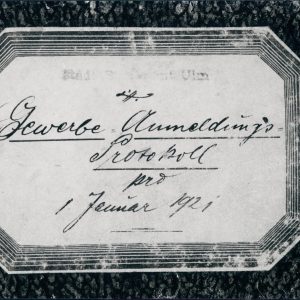 Gewerbe-Anmeldungs=
Protokoll
pro
1 Januar 1921